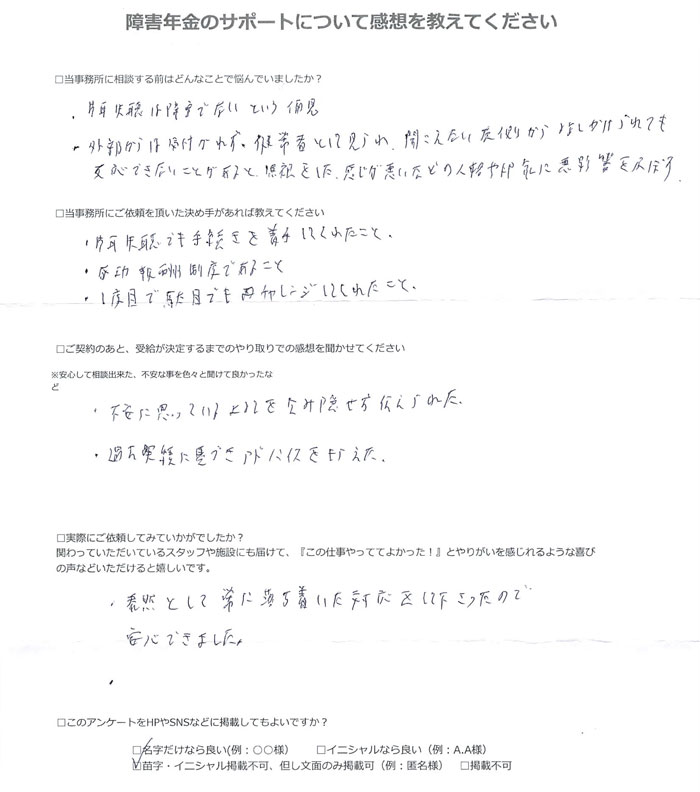 障害年金のサポートについて感想を教えてください
□当事務所に相談する前はどんなことで悩んでいましたか？
・片耳失聴は障害でないという偏見
・外部からは気付かれず、健常者として見られ、聞こえない左側から話しかけられても
反応できないことがあると、無視をした、感じが悪いなどの人格や印象に悪影響を及ぼす.
□当事務所にご依頼を頂いた決め手があれば教えてください
・片耳失聴でも手続きを着手してくれたこと。
・成功報酬制度であること
・1度目で駄目でも再チャレンジしてくれたこと。
□ご契約のあと、受給が決定するまでのやり取りでの感想を聞かせてください
※安心して相談出来た、不安な事を色々と聞けて良かったな
ど
・不安に思っていることを包み隠せず伝えられた.
・過去実績に基づきアドバイスを与えた.
□実際にご依頼してみていかがでしたか？
関わっていただいているスタッフや施設にも届けて、『この仕事やっててよかった！』とやりがいを感じれるような喜び
の声などいただけると嬉しいです。
・泰然として常に落ち着いた対応をして下さったので
安心できました。
・
□このアンケートをHPやSNSなどに掲載してもよいですか？
□名字だけなら良い(例：〇〇様） □イニシャルなら良い（例：A.A様）
☑苗字・イニシャル掲載不可、但し文面のみ掲載可（例：匿名様） □掲載不可